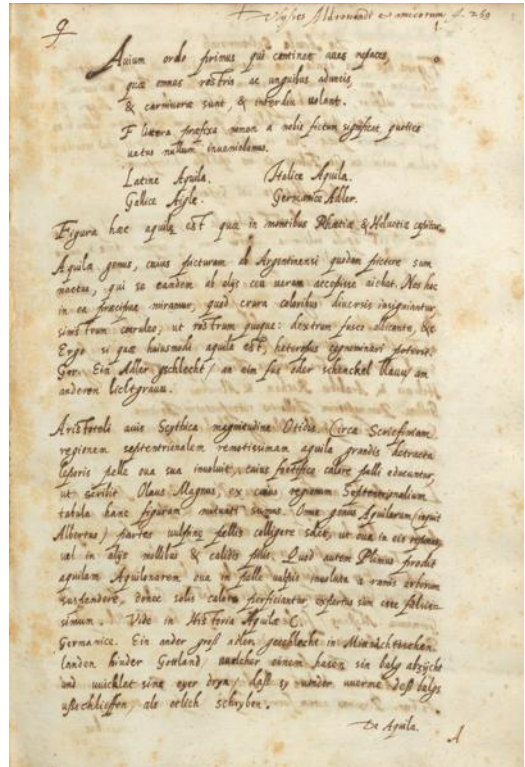 9
Ulyssis Aldrovandi et amicorum
1.
Avium ordo primus qui continet aues rapaces,
quæ omnes rostris ac unguibus aduncis,
& carniuoræ sunt, & interdiu uolant.
F litera præfixa nomen a nobis fictum significat, quoties
uetus nullum inueniebamus.
Latine Aquila. Italice Aquila.
Gallice Aigle. Germanice Adler.
Figura hæc aquilæ est quæ in montibus Rhætiæ & Heluetiæ capitur.
Aquilæ genus, cuius picturam ab Argentinensi quodam pictore sum
nactus, qui se eandem ab alijs ceu ueram accepisse aiebat. Nos hoc
in ea præcipue miramur, quod crura coloribus diuersis insigniantur
sinistrum cæruleo, ut rostrum quoque: dextrum fusco albicante, &c
Ergo si quæ huiusmodi aquila est, heteropus cognominari poterit.
Ger. Ein Adler gschlecht / an eim fus oder schenckel blauw / am
anderen liechtgrauw.
Aristoteli auis Scythica magnitudine Otidis. Circa Scricfinniam
regionem septentrionalem remotissimam aquila grandis detracta
leporis pelle oua sua inuoluit, cuius fœtifico calore pulli educuntur,
ut scribit Olaus Magnus, ex cuius regionum Septentrionalium
tabula hanc figuram mutuati sumus. Omne genus Aquilarum (inquit
Albertus) partes uulpinæ pellis colligere solet, ut oua in eis reponat,
uel in alijs mollibus & calidis pilis. Quod autem Plinius prodit
aquilam Aquilonarem oua in pelle uulpis inuoluta a ramis arborum
suspendere, donec solis calore perficiantur, expertus sum esse falsis-
simum. Vide in Historia Aquilæ C.
Germanice. Ein ander groß adler geschlecht in Mitnächtischen
landen hinder Gotland / welcher einem hasen sin balg abzücht
und wicklet sine eyer dryn / daß sy under wermē deß balgs
ußschlieffen, als etlich schryben.
De Aquila.
A